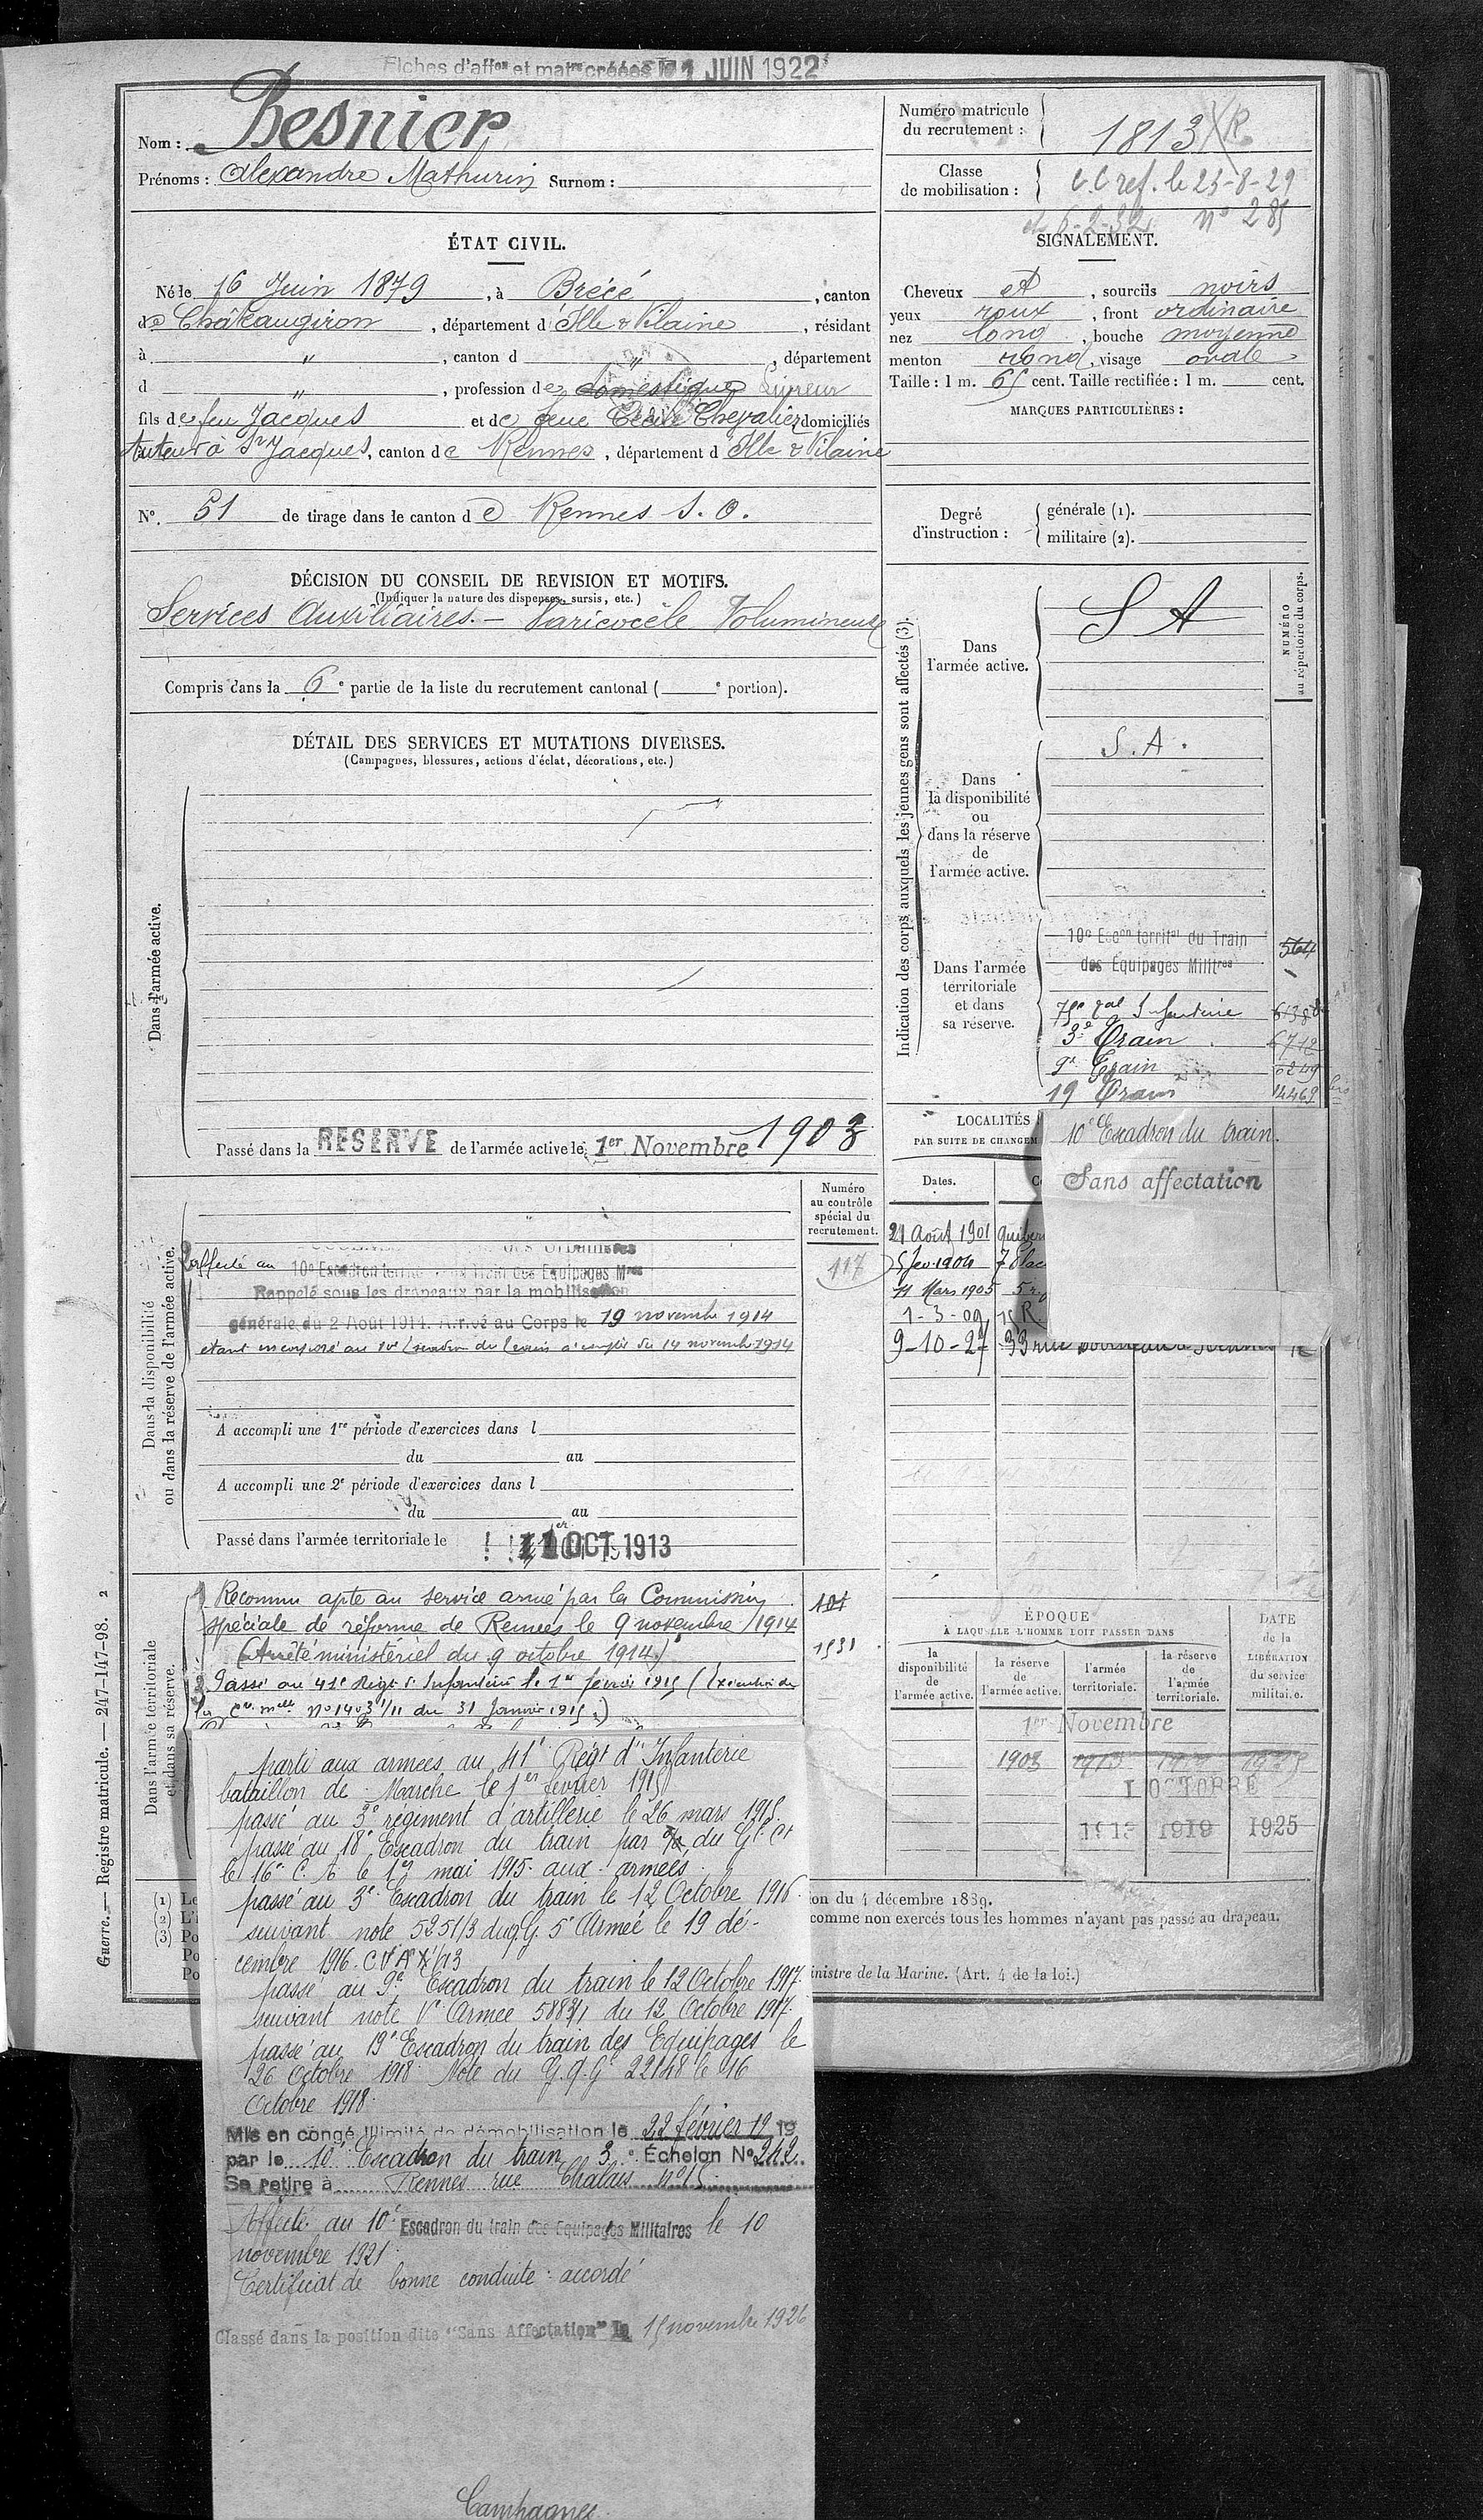 Fiches d'affon et matre créées le 1 JUIN 1922
Nom : Besnier
Prénoms : Alexandre Mathurin Surnom :
Numéro matricule
du recrutement : 1813 R
Classe
de mobilisation : C C ref. le 23-8-29
6-2-32 n° 285
ÉTAT CIVIL.
Né le 16 Juin 1879, à Brécé, canton
de Châteaugiron, département d'Ille & Vilaine, résidant
à " , canton d " , département
d " , profession de domestique Livreur
fils de feu Jacques et de feue Chevalier domiciliés
tuteur à St Jacques, canton de Rennes, département d Ille & Vilaine
N° 51 de tirage dans le canton de Rennes S. O.
SIGNALEMENT.
Cheveux et, sourcils noirs
yeux roux, front ordinaire
nez long, bouche moyenne
menton rond, visage ovale
Taille : 1 m. 65 cent. Taille rectifiée : 1 m. cent.
MARQUES PARTICULIÈRES :
Degré
d'instruction :
générale (1).
militaire (2).
DÉCISION DU CONSEIL DE REVISION ET MOTIFS.
(Indiquer la nature des dispenses, sursis, etc.)
Services Auxiliaires. — Varicocèle Volumineux
Compris dans la 6e partie de la liste du recrutement cantonal ( e portion).
DÉTAIL DES SERVICES ET MUTATIONS DIVERSES.
(Campagnes, blessures, actions d'éclat, décorations, etc.)
Dans l'armée active.
Passé dans la RÉSERVE de l'armée active le 1er Novembre 1903
Indication des corps auxquels les jeunes gens sont affectés (3).
NUMÉRO
au répertoire du corps.
Dans
l'armée active.
S A
Dans
la disponibilité
ou
dans la réserve
de
l'armée active.
S. A.
Dans l'armée
territoriale
et dans
sa réserve.
10e Escon territal du Train
des Équipages Militres
564
75e Infanterie
3e Train 6712
9e Train
19 Train 14469 bis
10e Escadron du train.
Sans affectation
LOCALITÉS
PAR SUITE DE CHANGEM
Dates.
21 Août 1901
5 fev. 1904
11 Mars 1905
1-3-09
9-10-27
Dans la disponibilité
ou dans la réserve de l'armée active.
Numéro
au contrôle
spécial du
recrutement.
117
Affecté au 10e Escadron du Train des Équipages Mres
Rappelé sous les drapeaux par la mobilisation
générale du 2 Août 1914. Arrivé au Corps le 19 novembre 1914
étant incorporé au 10e Escadron du train à compter du 14 novembre 1914
A accompli une 1re période d'exercices dans l
du au
A accompli une 2e période d'exercices dans l
du au
Passé dans l'armée territoriale le 1 OCT 1913
Dans l'armée territoriale
et dans sa réserve.
Reconnu apte au service armé par la Commission
spéciale de réforme de Rennes le 9 novembre 1914
(Arrêté ministériel du 9 octobre 1914)
Passé au 41e Régt d'Infanterie le 1er février 1915 (Exécution de
la Cre mlle n° 1403 1/11 du 31 Janvier 1915)
101
1931
parti aux armées au 41e Régt d'Infanterie
bataillon de Marche le 1er février 1915
passé au 3e régiment d'artillerie le 26 mars 1915.
passé au 18e Escadron du train par du Gl Ct
le 16e C. A. le 1er mai 1915. aux armées.
passé au 3e Escadron du train le 12 Octobre 1916.
suivant note 5251/3 du Q.G. 5e Armée le 19 dé-
cembre 1916.
passé au 9e Escadron du train le 12 Octobre 1917.
suivant note Ve Armée 5883/1 du 12 Octobre 1917.
passé au 19e Escadron du train des Équipages le
26 Octobre 1918 Note du G.Q.G 22148 le 16
Octobre 1918.
Mis en congé illimité de démobilisation le 22 février 1919
par le 10e Escadron du train 3e Échelon N° 242
Se retire à Rennes rue Chalais n° 15
Affecté au 10e Escadron du train des Équipages Militaires le 10
novembre 1921
Certificat de bonne conduite : accordé
Classé dans la position dite "Sans Affectation" le 15 novembre 1926
Campagnes.
ÉPOQUE
À LAQUELLE L'HOMME DOIT PASSER DANS
DATE
de la
LIBÉRATION
du service
militaire.
la
disponibilité
de
l'armée active.
la réserve
de
l'armée active.
l'armée
territoriale.
la réserve
de
l'armée
territoriale.
1er Novembre
1903 1913
1 OCTOBRE
1913 1919 1925
(1) Le
(2) L'
(3) Po
Po
Po
on du 4 décembre 1889.
comme non exercés tous les hommes n'ayant pas passé au drapeau.
inistre de la Marine. (Art. 4 de la loi.)
Guerre. — Registre matricule. — 247-147-98. 2